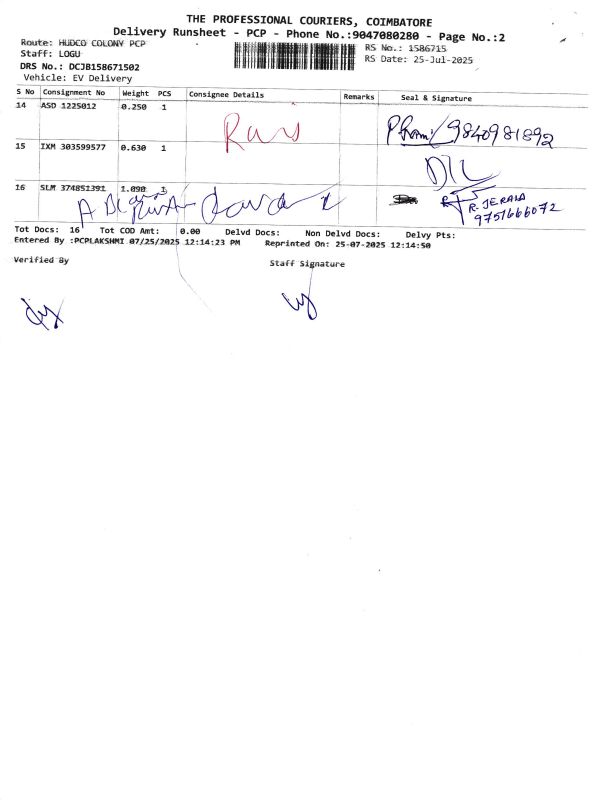 THE PROFESSIONAL COURIERS, COIMBATORE
Delivery Runsheet - PCP - Phone No.:9047080280 - Page No.:2
Route: HUDCO COLONY PCP
Staff: LOGU
DRS No.: DCJB158671502
Vehicle: EV Delivery
RS No.: 1586715
RS Date: 25-Jul-2025
S No Consignment No Weight PCS Consignee Details Remarks Seal & Signature
14 ASD 1225012 0.250 1
9840981892
15 IXM 303599577 0.630 1
16 SLM 374851391 1.090 1
R. JERALD
9751666072
Tot Docs: 16 Tot COD Amt: 0.00 Delvd Docs: Non Delvd Docs: Delvy Pts:
Entered By :PCPLAKSHMI 07/25/2025 12:14:23 PM Reprinted On: 25-07-2025 12:14:50
Verified By
Staff Signature